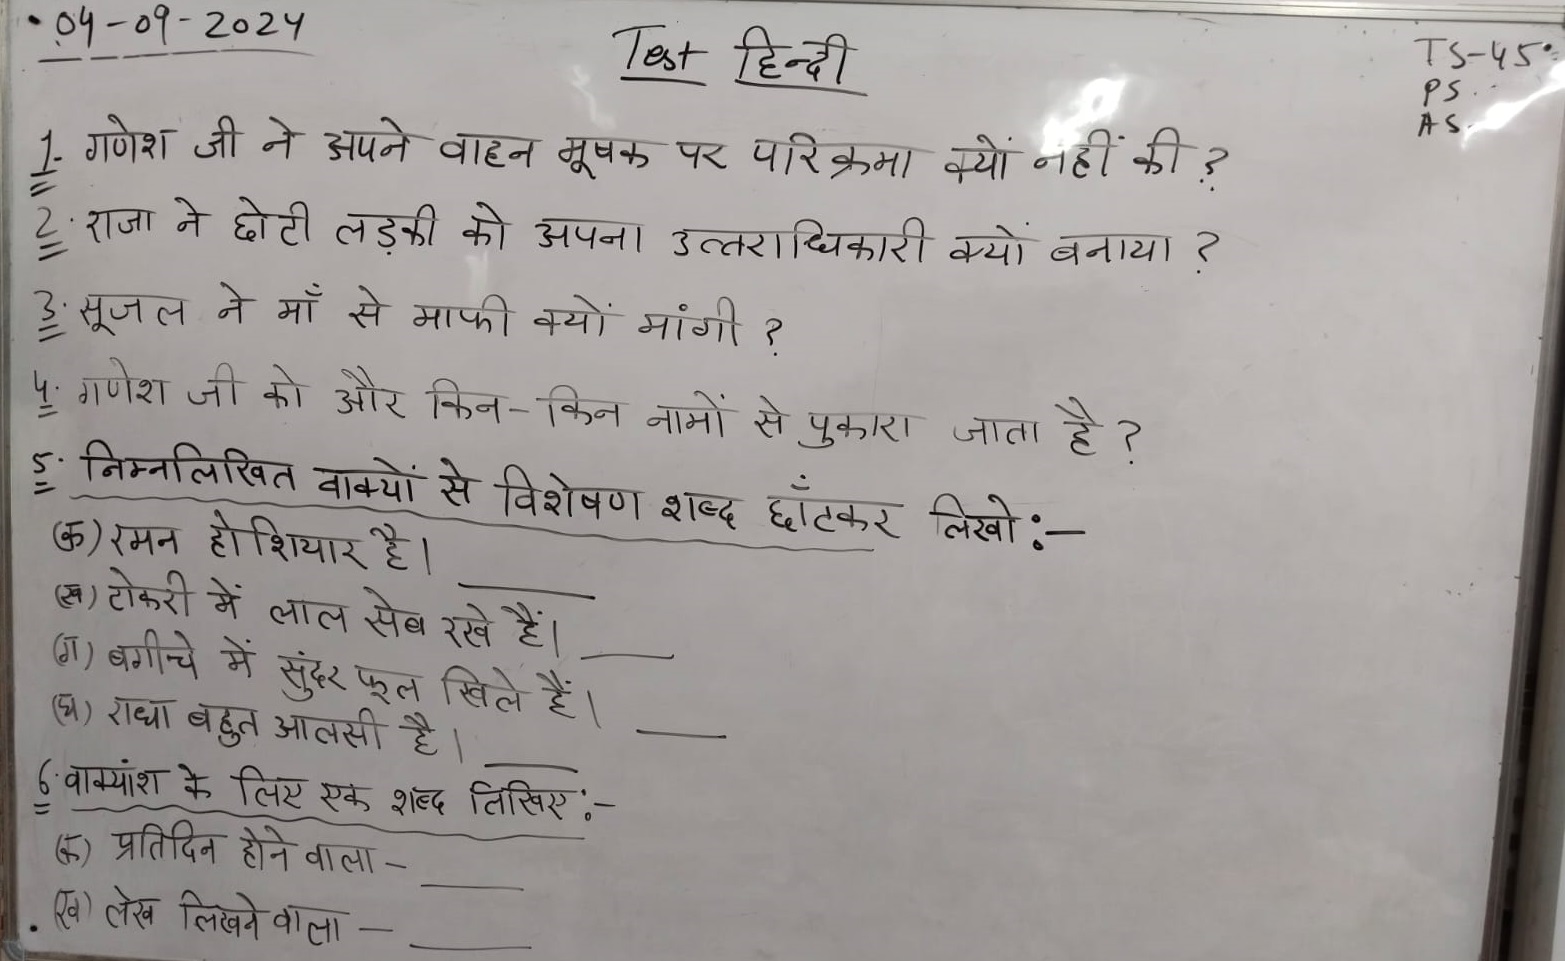 04-09-2024
Test हिन्दी
TS-45
PS.
AS.
1. गणेश जी ने अपने वाहन मूषक पर परिक्रमा क्यों नहीं की ?
2. राजा ने छोटी लड़की को अपना उत्तराधिकारी क्यों बनाया ?
3. सूजल ने माँ से माफी क्यों मांगी ?
4. गणेश जी को और किन-किन नामों से पुकारा जाता है ?
5. निम्नलिखित वाक्यों से विशेषण शब्द छाँटकर लिखो :-
(क) रमन होशियार है। ____
(ख) टोकरी में लाल सेब रखे हैं। ____
(ग) बगीचे में सुंदर फूल खिले हैं। ____
(घ) राधा बहुत आलसी है। ____
6. वाक्यांश के लिए एक शब्द लिखिए :-
(क) प्रतिदिन होने वाला - ____
(ख) लेख लिखने वाला - ____